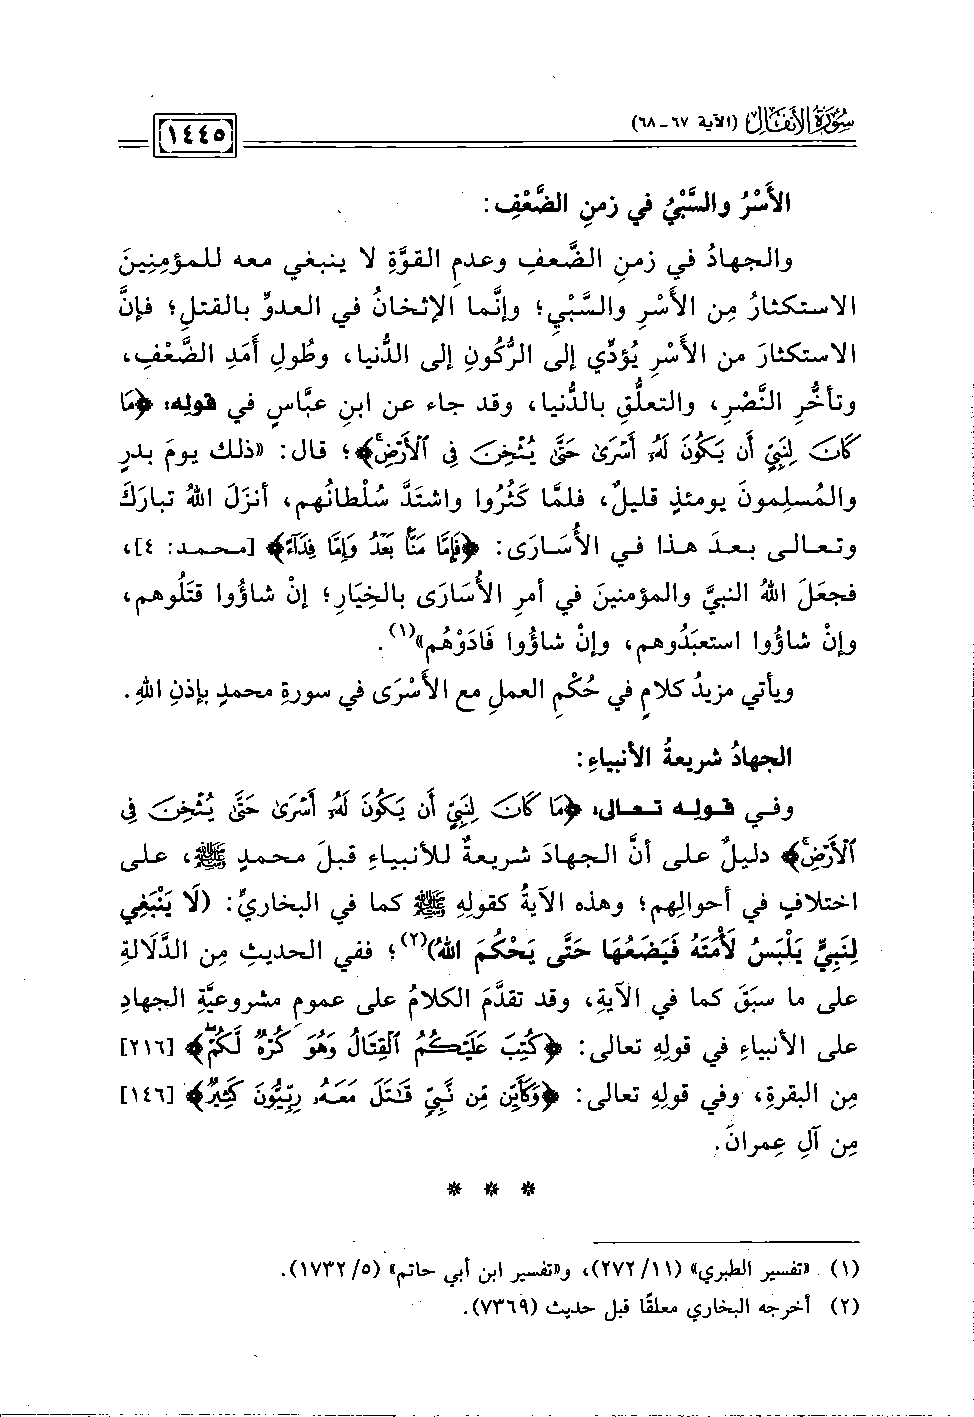 سورة الأنفال (الآية ٦٧ - ٦٨)
١٤٤٥
الأَسْرُ والسَّبْيُ في زمنِ الضَّعْفِ:
والجهادُ في زمنِ الضَّعفِ وعدمِ القوَّةِ لا ينبغي معه للمؤمِنِينَ
الاستكثارُ مِن الأَسْرِ والسَّبْيِ؛ وإنَّما الإثخانُ في العدوِّ بالقتلِ؛ فإنَّ
الاستكثارَ من الأَسْرِ يُؤدِّي إلى الرُّكُونِ إلى الدُّنيا، وطُولِ أَمَدِ الضَّعْفِ،
وتأخُّرِ النَّصْرِ، والتعلُّقِ بالدُّنيا، وقد جاء عن ابنِ عبَّاسٍ في قوله: ﴿مَا
كَانَ لِنَبِيٍّ أَن يَكُونَ لَهُۥٓ أَسْرَىٰ حَتَّىٰ يُثْخِنَ فِي ٱلْأَرْضِۚ﴾؛ قال: «ذلك يوم بدرٍ
والمُسلِمونَ يومئذٍ قليلٌ، فلمَّا كَثُرُوا واشتَدَّ سُلْطانُهم، أنزَلَ اللهُ تبارَكَ
وتعالى بعدَ هذا في الأُسَارَى: ﴿فَإِمَّا مَنًّۢا بَعْدُ وَإِمَّا فِدَآءً﴾ [محمد: ٤]،
فجعَلَ اللهُ النبيَّ والمؤمنينَ في أمرِ الأُسَارَى بالخِيَارِ؛ إنْ شاؤُوا قتَلُوهم،
وإنْ شاؤُوا استعبَدُوهم، وإنْ شاؤُوا فَادَوْهُم»(١).
ويأتي مزيدُ كلامٍ في حُكْمِ العملِ مع الأَسْرَى في سورةِ محمدٍ بإذنِ اللهِ.
الجهادُ شريعةُ الأنبياءِ:
وفي قوله تعالى: ﴿مَا كَانَ لِنَبِيٍّ أَن يَكُونَ لَهُۥٓ أَسْرَىٰ حَتَّىٰ يُثْخِنَ فِي
ٱلْأَرْضِۚ﴾ دليلٌ على أنَّ الجهادَ شريعةٌ للأنبياءِ قبلَ محمدٍ ﷺ، على
اختلافٍ في أحوالِهم؛ وهذه الآيةُ كقولِهِ ﷺ كما في البخاريِّ: (لَا يَنْبَغِي
لِنَبِيٍّ يَلْبَسُ لَأْمَتَهُ فَيَضَعُهَا حَتَّى يَحْكُمَ اللهُ)(٢)؛ ففي الحديثِ مِن الدَّلالةِ
على ما سبَقَ كما في الآيةِ، وقد تقدَّمَ الكلامُ على عمومِ مشروعيَّةِ الجهادِ
على الأنبياءِ في قولِهِ تعالى: ﴿كُتِبَ عَلَيْكُمُ ٱلْقِتَالُ وَهُوَ كُرْهٌ لَّكُمْۖ﴾ [٢١٦]
مِن البقرةِ، وفي قولِهِ تعالى: ﴿وَكَأَيِّن مِّن نَّبِيٍّ قَٰتَلَ مَعَهُۥ رِبِّيُّونَ كَثِيرٌ﴾ [١٤٦]
مِن آلِ عِمرانَ.
* * *
(١) «تفسير الطبري» (١١/ ٢٧٢)، و«تفسير ابن أبي حاتم» (٥/ ١٧٣٢).
(٢) أخرجه البخاري معلقًا قبل حديث (٧٣٦٩).